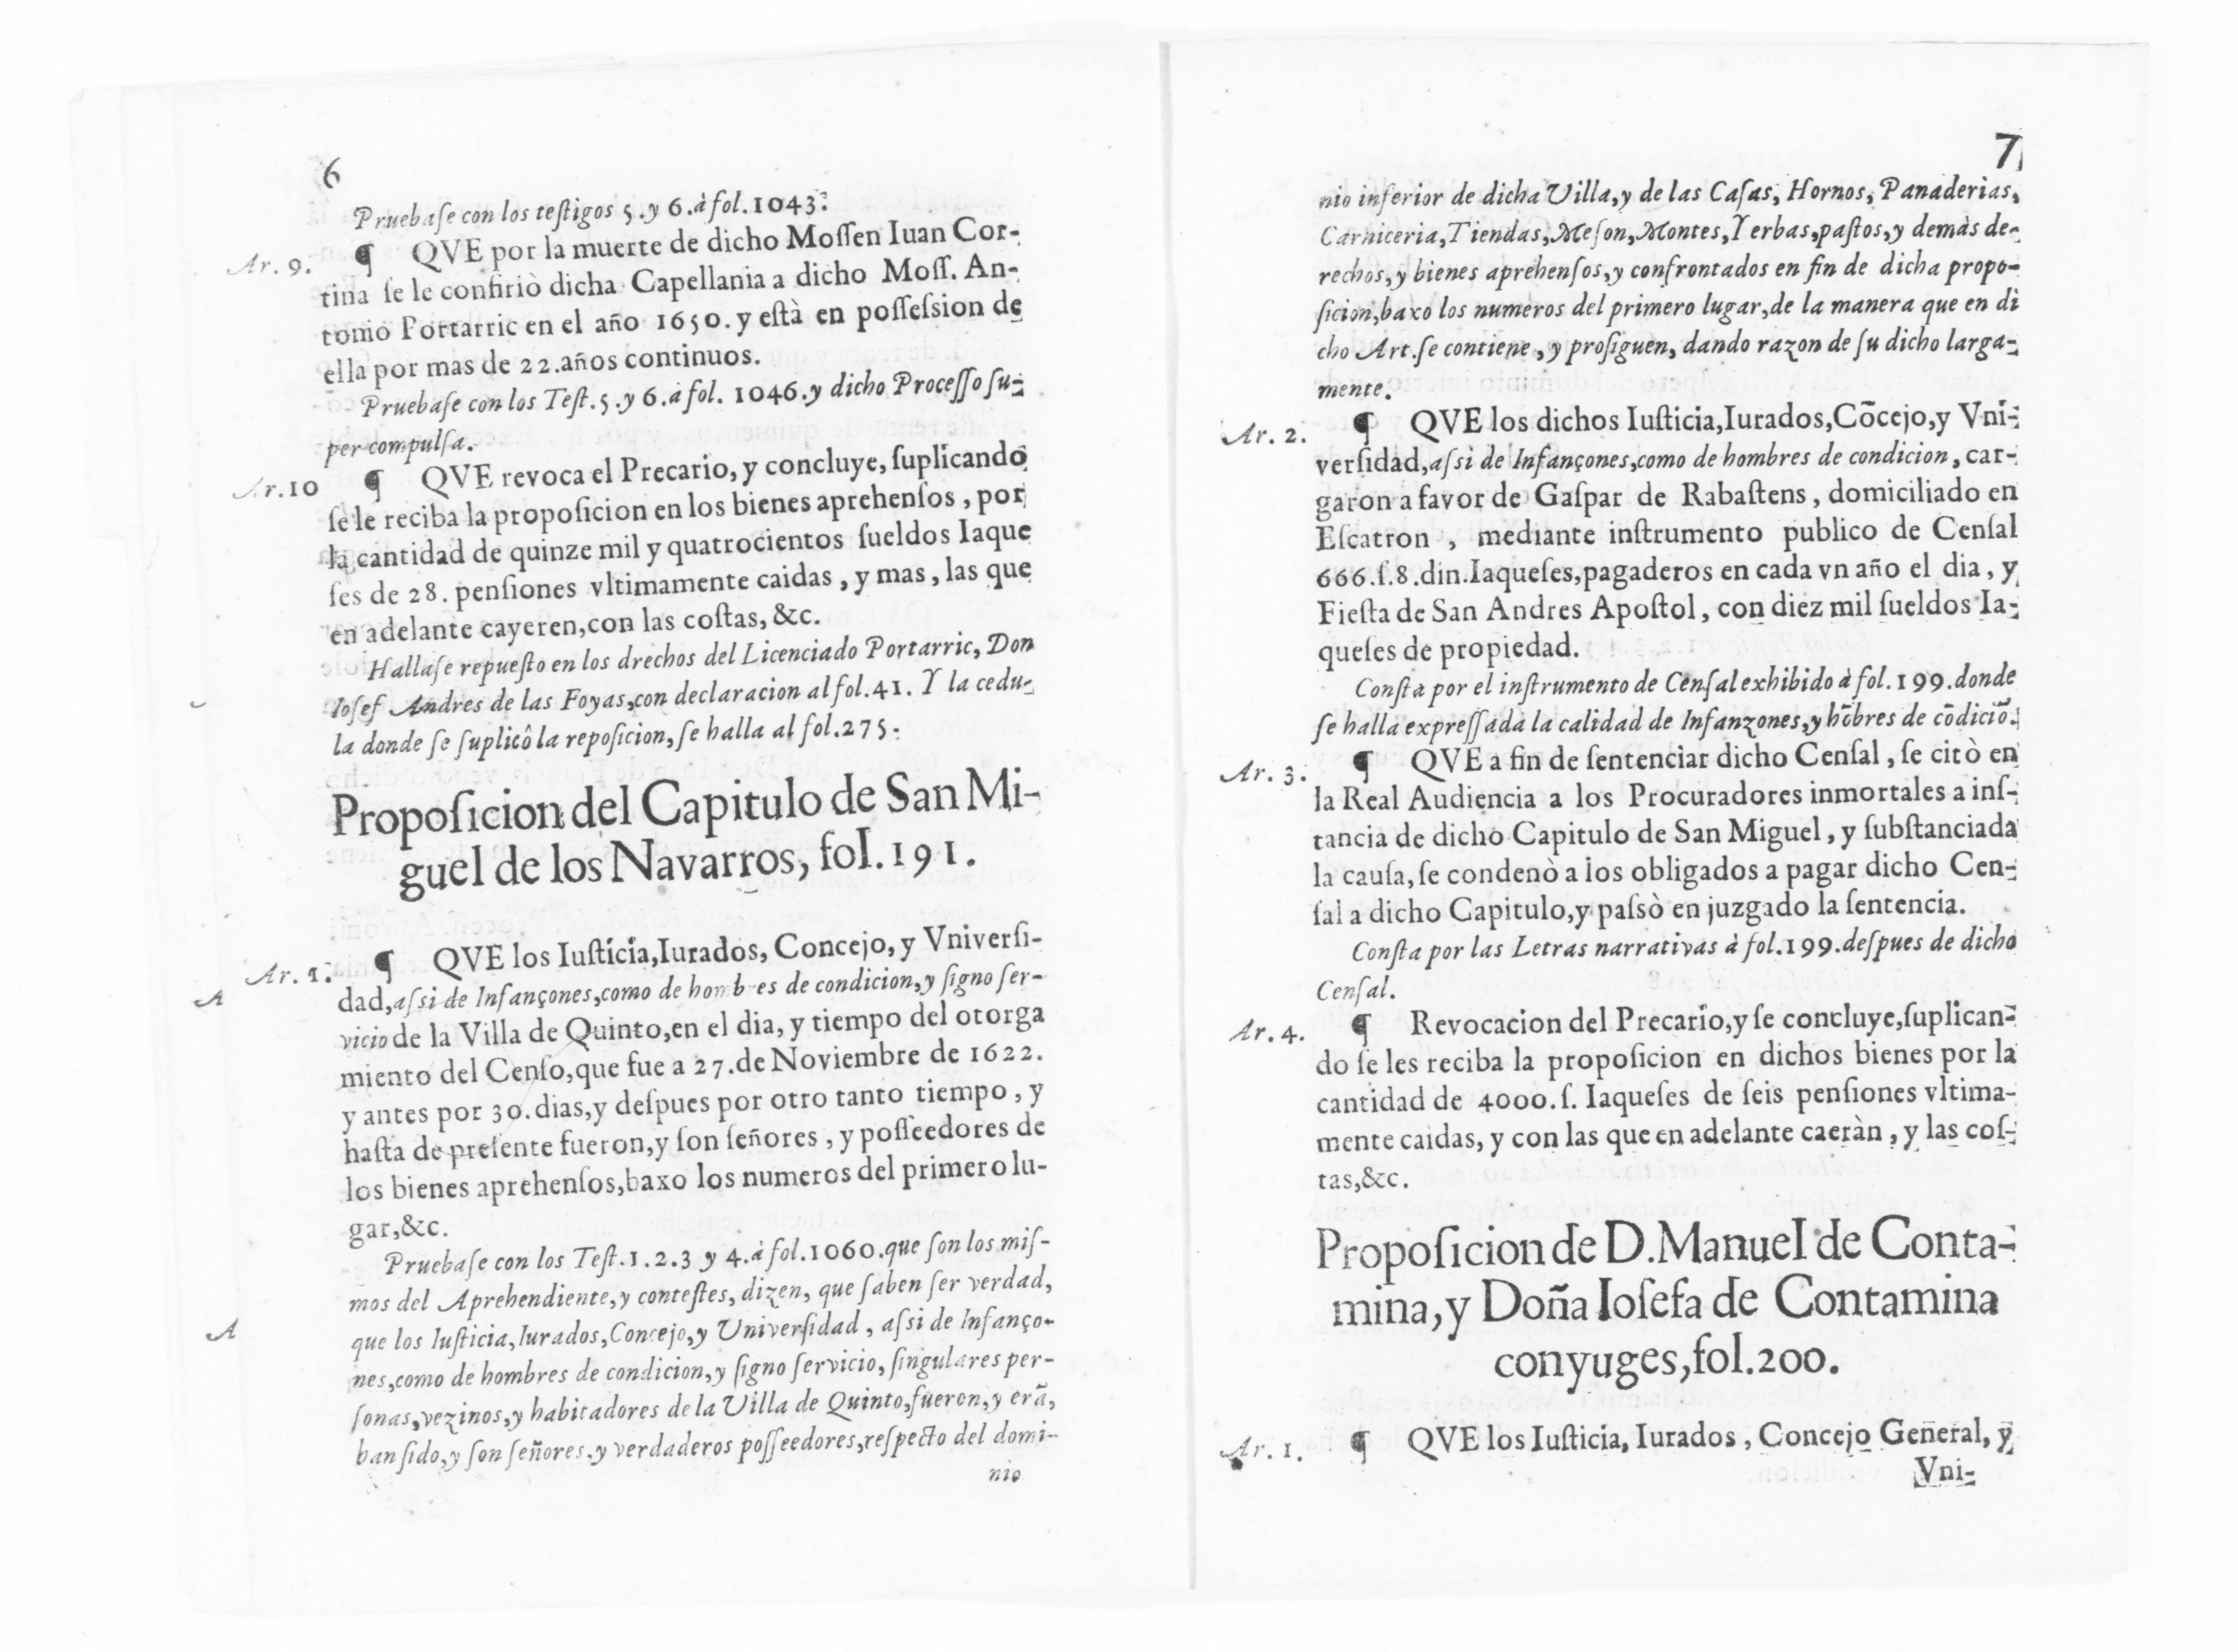 6
Pruebaſe con los teſtigos 5.y 6.à fol.1043.
Ar. 9. ¶ QVE por la muerte de dicho Moſſen Iuan Cor-
tina ſe le confiriò dicha Capellania a dicho Moſſ. An-
tonio Portarric en el año 1650. y eſtà en poſſeſsion de
ella por mas de 22.años continuos.
Pruebaſe con los Teſt.5.y 6.à fol. 1046.y dicho Proceſſo ſu-
per compulſa.
Ar.10 ¶ QVE revoca el Precario, y concluye, ſuplicando
ſe le reciba la propoſicion en los bienes aprehenſos , por
la cantidad de quinze mil y quatrocientos ſueldos Iaque
ſes de 28. penſiones vltimamente caidas , y mas , las que
en adelante cayeren,con las coſtas, &c.
Hallaſe repueſto en los drechos del Licenciado Portarric, Don
Ioſef Andres de las Foyas,con declaracion al fol.41. Y la cedu-
la donde ſe ſuplicô la repoſicion, ſe halla al fol.275.
Propoſicion del Capitulo de San Mi-
guel de los Navarros, fol.191.
Ar. 1. ¶ QVE los Iuſticia,Iurados, Concejo, y Vniverſi-
A dad,aſsi de Infançones,como de hombres de condicion,y ſigno ſer-
vicio de la Villa de Quinto,en el dia, y tiempo del otorga
miento del Cenſo,que fue a 27.de Noviembre de 1622.
y antes por 30.dias,y deſpues por otro tanto tiempo , y
haſta de preſente fueron,y ſon ſeñores , y poſſeedores de
los bienes aprehenſos,baxo los numeros del primero lu-
gar,&c.
Pruebaſe con los Teſt.1.2.3 y 4.à fol.1060.que ſon los miſ-
mos del Aprehendiente,y conteſtes, dizen, que ſaben ſer verdad,
A que los Iuſticia,Iurados,Concejo,y Univerſidad , aſsi de Infanço-
nes,como de hombres de condicion,y ſigno ſervicio, ſingulares per-
ſonas,vezinos,y habitadores de la Villa de Quinto,fueron,y erã,
han ſido,y ſon ſeñores,y verdaderos poſſeedores,reſpecto del domi-
nio
7
nio inferior de dicha Villa,y de las Caſas, Hornos, Panaderias,
Carniceria,Tiendas,Meſon,Montes,Yerbas,paſtos,y demàs de-
rechos,y bienes aprehenſos,y confrontados en fin de dicha propo-
ſicion,baxo los numeros del primero lugar,de la manera que en di
cho Art.ſe contiene , y proſiguen, dando razon de ſu dicho larga-
mente.
Ar. 2. ¶ QVE los dichos Iuſticia,Iurados,Cõcejo,y Vni-
verſidad,aſsi de Infançones,como de hombres de condicion, car-
garon a favor de Gaſpar de Rabaſtens , domiciliado en
Eſcatron , mediante inſtrumento publico de Cenſal
666.ſ.8.din.Iaqueſes,pagaderos en cada vn año el dia , y
Fieſta de San Andres Apoſtol , con diez mil ſueldos Ia-
queſes de propiedad.
Conſta por el inſtrumento de Cenſal exhibido à fol.199.donde
ſe halla expreſſada la calidad de Infanzones,y hõbres de cõdiciõ.
Ar. 3. ¶ QVE a fin de ſentenciar dicho Cenſal , ſe citò en
la Real Audiencia a los Procuradores inmortales a inſ-
tancia de dicho Capitulo de San Miguel , y ſubſtanciada
la cauſa, ſe condenò a los obligados a pagar dicho Cen-
ſal a dicho Capitulo,y paſsò en juzgado la ſentencia.
Conſta por las Letras narrativas à fol.199.deſpues de dicho
Cenſal.
Ar. 4. ¶ Revocacion del Precario,y ſe concluye,ſuplican-
do ſe les reciba la propoſicion en dichos bienes por la
cantidad de 4000.ſ. Iaqueſes de ſeis penſiones vltima-
mente caidas, y con las que en adelante caeràn , y las coſ-
tas,&c.
Propoſicion de D.Manuel de Conta-
mina, y Doña Ioſefa de Contamina
conyuges,fol.200.
Ar. 1. ¶ QVE los Iuſticia, Iurados , Concejo General, y
Vni-